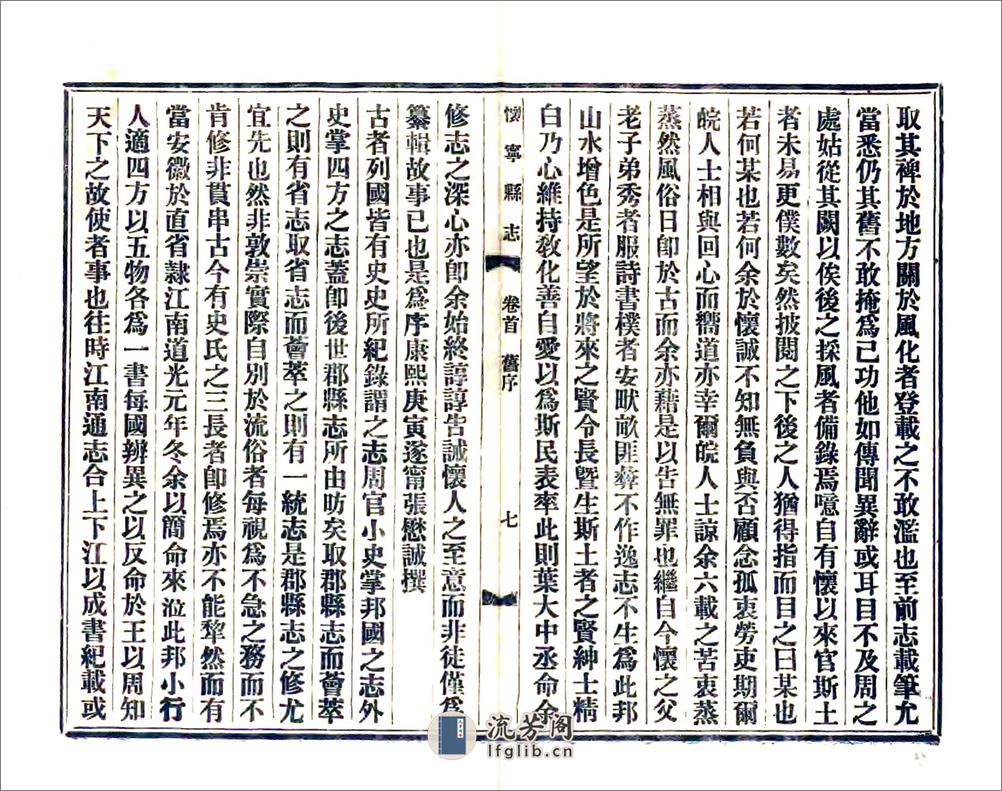 取其裨於地方關於風化者登載之不敢濫也至前志載筆尤
當悉仍其舊不敢掩爲己功他如傳聞異辭或耳目不及周之
處姑從其闕以俟後之採風者備錄焉噫自有懷以來官斯土
者未易更僕數矣然披閱之下後之人猶得指而目之曰某也
若何某也若何余於懷誠不知無負與否顧念孤衷勞吏期爾
皖人士相與回心而嚮道亦幸爾皖人士諒余六載之苦衷蒸
蒸然風俗日卽於古而余亦藉是以告無罪也繼自今懷之父
老子弟秀者服詩書樸者安畎畝匪彝不作逸志不生爲此邦
山水增色是所望於將來之賢令長暨生斯土者之賢紳士精
白乃心維持敎化善自愛以爲斯民表率此則葉大中丞命余
懷寧縣志 卷首 舊序 七
修志之深心亦卽余始終諄諄告誡懷人之至意而非徒僅爲
纂輯故事已也是爲序康熙庚寅遂甯張懋誠撰
古者列國皆有史史所紀錄謂之志周官小史掌邦國之志外
史掌四方之志蓋卽後世郡縣志所由昉矣取郡縣志而薈萃
之則有省志取省志而薈萃之則有一統志是郡縣志之修尤
宜先也然非敦崇實際自別於流俗者每視爲不急之務而不
肯修非貫串古今有史氏之三長者卽修焉亦不能犂然而有
當安徽於直省隸江南道光元年冬余以簡命來涖此邦小行
人適四方以五物各爲一書每國辨異之以反命於王以周知
天下之故使者事也往時江南通志合上下江以成書紀載或
流芳阁
lfglib.cn